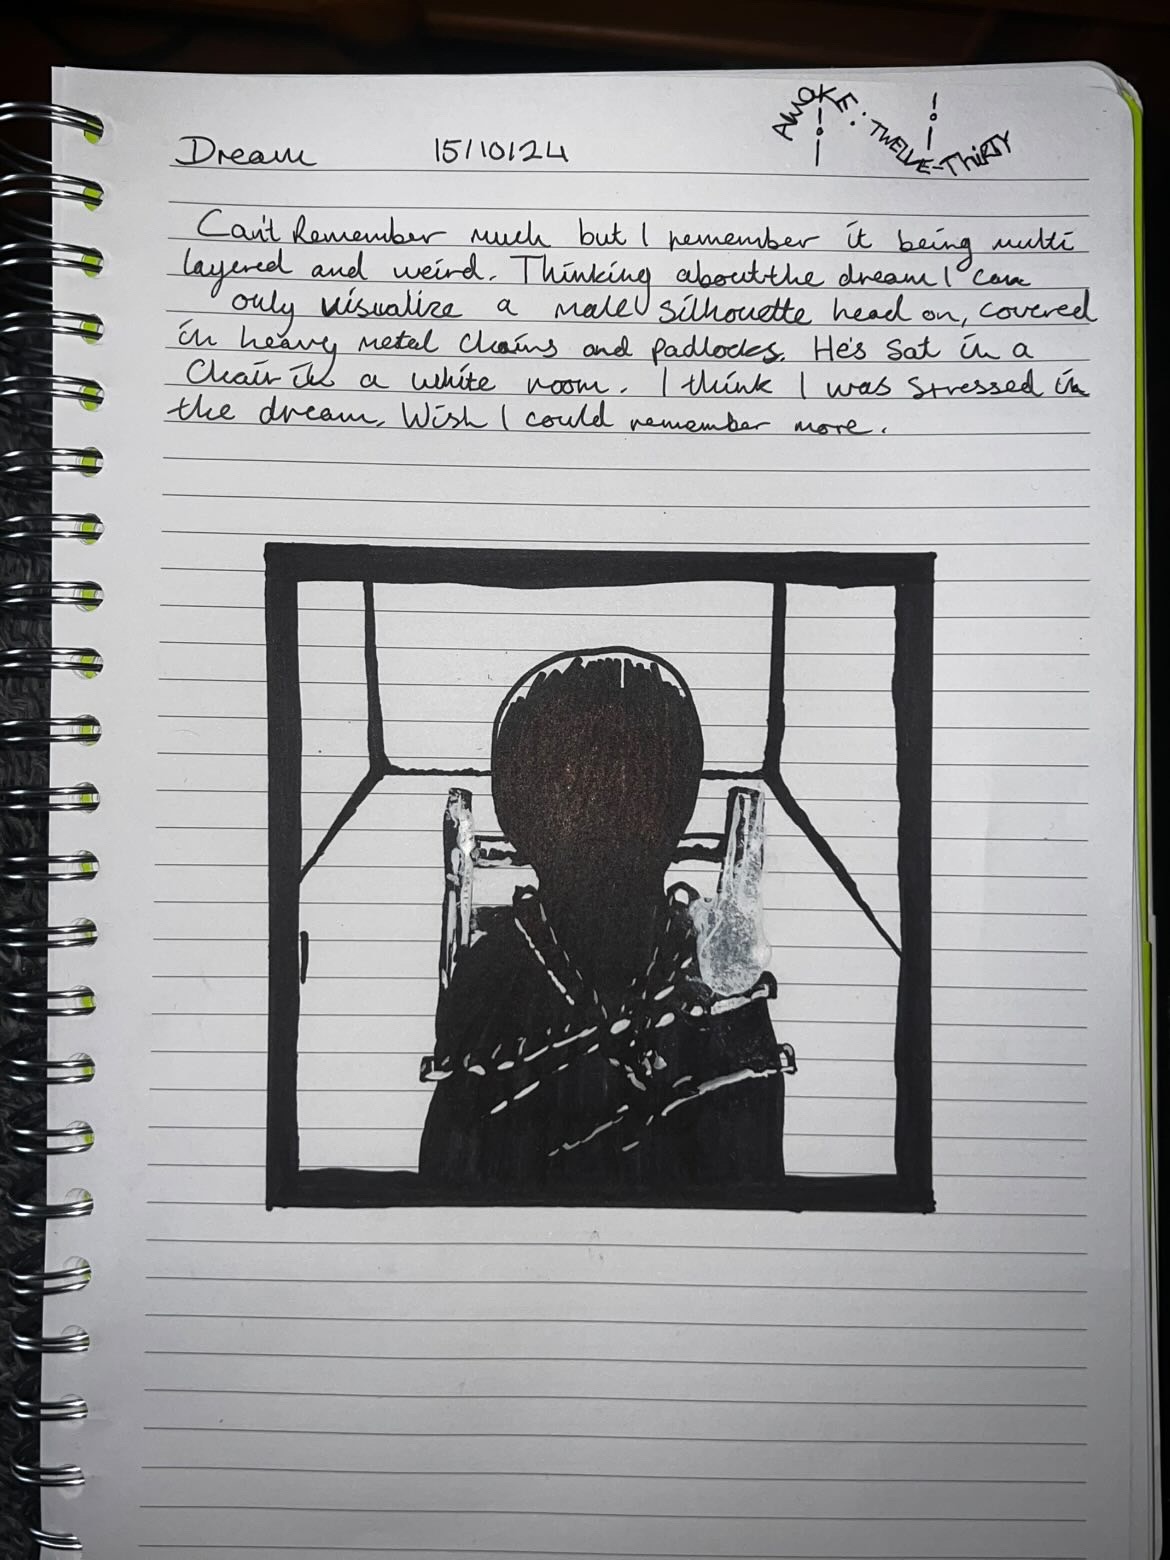 Dream 15/10/24
AWOKE: TWELVE-THIRTY
Can't Remember much but I remember it being multi
layered and weird. Thinking about the dream I can
only visualize a male silhouette head on, covered
in heavy metal chains and padlocks. He's sat in a
Chair in a white room. I think I was stressed in
the dream. Wish I could remember more.